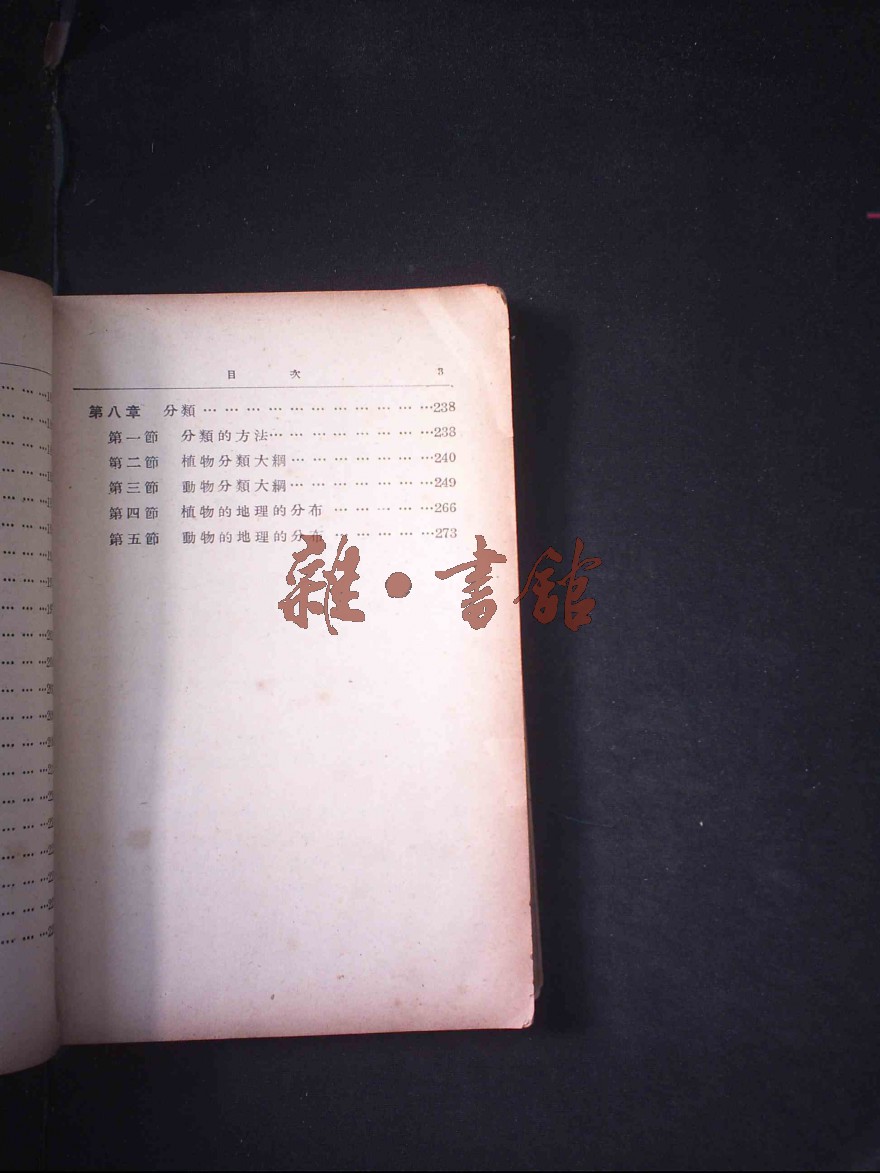 目 次 3
第八章 分類 … … … … … … … … … … …238
第一節 分類的方法… … … … … … … …233
第二節 植物分類大綱… … … … … … …240
第三節 動物分類大綱… … … … … … …249
第四節 植物的地理的分布 … … … … …266
第五節 動物的地理的分布 … … … … …273
雜·書館